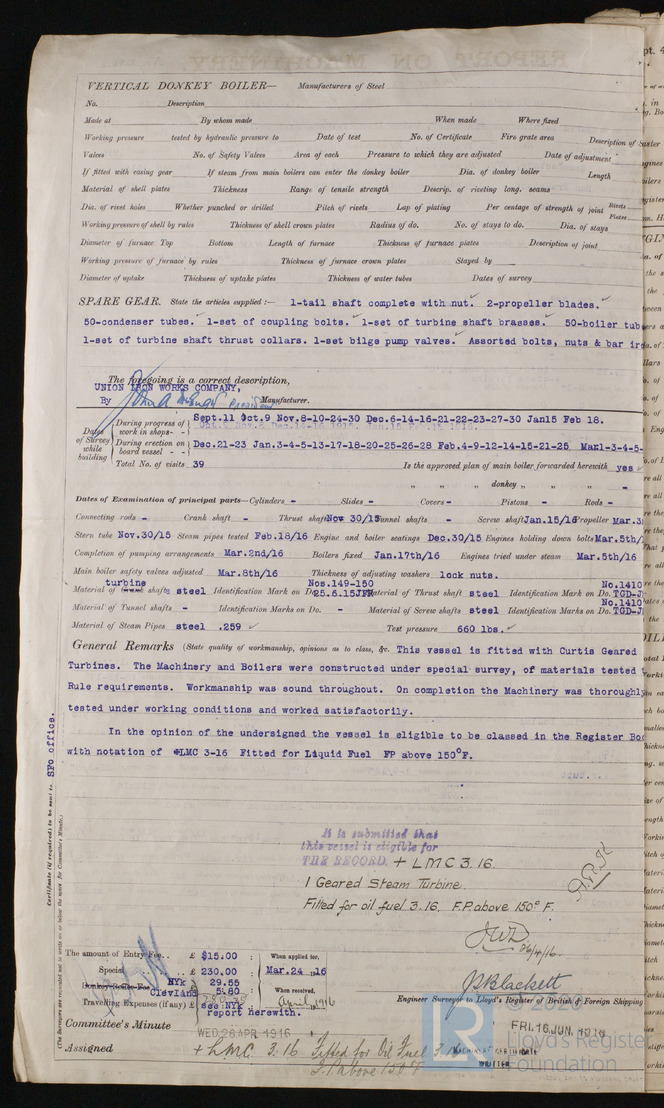 VERTICAL DONKEY BOILER— Manufacturers of Steel
No. Description
Made at By whom made When made Where fixed
Working pressure tested by hydraulic pressure to Date of test No. of Certificate Fire grate area Description of
Valves No. of Safety Valves Area of each Pressure to which they are adjusted Date of adjustment
If fitted with easing gear If steam from main boilers can enter the donkey boiler Dia. of donkey boiler Length
Material of shell plates Thickness Range of tensile strength Descrip. of riveting long. seams
Dia. of rivet holes Whether punched or drilled Pitch of rivets Lap of plating Per centage of strength of joint Rivets Plates
Working pressure of shell by rules Thickness of shell crown plates Radius of do. No. of stays to do. Dia. of stays
Diameter of furnace Top Bottom Length of furnace Thickness of furnace plates Description of joint
Working pressure of furnace by rules Thickness of furnace crown plates Stayed by
Diameter of uptake Thickness of uptake plates Thickness of water tubes Dates of survey
SPARE GEAR. State the articles supplied :— 1-tail shaft complete with nut. 2-propeller blades.
50-condenser tubes. 1-set of coupling bolts. 1-set of turbine shaft brasses. 50-boiler tub
1-set of turbine shaft thrust collars. 1-set bilge pump valves. Assorted bolts, nuts & bar iro
The foregoing is a correct description,
UNION IRON WORKS COMPANY,
By President Manufacturer.
Dates of Survey while building
During progress of work in shops - - Sept.11 Oct.9 Nov.8-10-24-30 Dec.6-14-16-21-22-23-27-30 Jan15 Feb 18.
During erection on board vessel - - Dec.21-23 Jan.3-4-5-13-17-18-20-25-26-28 Feb.4-9-12-14-15-21-25 Mar1-3-4-5-
Total No. of visits 39 Is the approved plan of main boiler forwarded herewith yes
" " donkey " " " -
Dates of Examination of principal parts—Cylinders - Slides - Covers - Pistons - Rods -
Connecting rods - Crank shaft - Thrust shaft Nov 30/15 Tunnel shafts - Screw shaft Jan.15/16 Propeller Mar.3
Stern tube Nov.30/15 Steam pipes tested Feb.18/16 Engine and boiler seatings Dec.30/15 Engines holding down bolts Mar.5th/
Completion of pumping arrangements Mar.2nd/16 Boilers fixed Jan.17th/16 Engines tried under steam Mar.5th/16
Main boiler safety valves adjusted Mar.8th/16 Thickness of adjusting washers lock nuts.
turbine Nos.149-150 No.1410
Material of Crank shafts steel Identification Mark on Do. 25.6.15JFM Material of Thrust shaft steel Identification Mark on Do. TGD-J
No.1410
Material of Tunnel shafts - Identification Marks on Do. - Material of Screw shafts steel Identification Marks on Do. TGD-J
Material of Steam Pipes steel .259 Test pressure 660 lbs.
General Remarks (State quality of workmanship, opinions as to class, &c. This vessel is fitted with Curtis Geared
Turbines. The Machinery and Boilers were constructed under special survey, of materials tested t
Rule requirements. Workmanship was sound throughout. On completion the Machinery was thoroughly
tested under working conditions and worked satisfactorily.
In the opinion of the undersigned the vessel is eligible to be classed in the Register Boo
with notation of +LMC 3-16 Fitted for Liquid Fuel FP above 150°F.
It is submitted that
this vessel is eligible for
THE RECORD. + LMC 3.16.
1 Geared Steam Turbine.
Fitted for oil fuel 3.16. F.P. above 150° F.
JWD
26/4/16.
Certificate (if required) to be sent to SFo office.
(The Surveyors are requested not to write on or below the space for Committee's Minute.)
The amount of Entry Fee .. £ $15.00 : When applied for,
Special .. £ 230.00 : Mar.24 1916
Donkey Boiler Fee NYk £ 29.55 : When received,
Clevland 5.80
Travelling Expenses (if any) £ see NYk : April 1916
report herewith.
J S Blackett
Engineer Surveyor to Lloyd's Register of British & Foreign Shipping
Committee's Minute WED. 26 APR 1916 FRI. 16 JUN. 1916
Assigned + LMC 3.16 Fitted for Oil Fuel 3.16
F.P. above 150°F
MACHINERY CERTIFICATE
WRITTEN
LR
© 2020
Lloyd's Register
Foundation